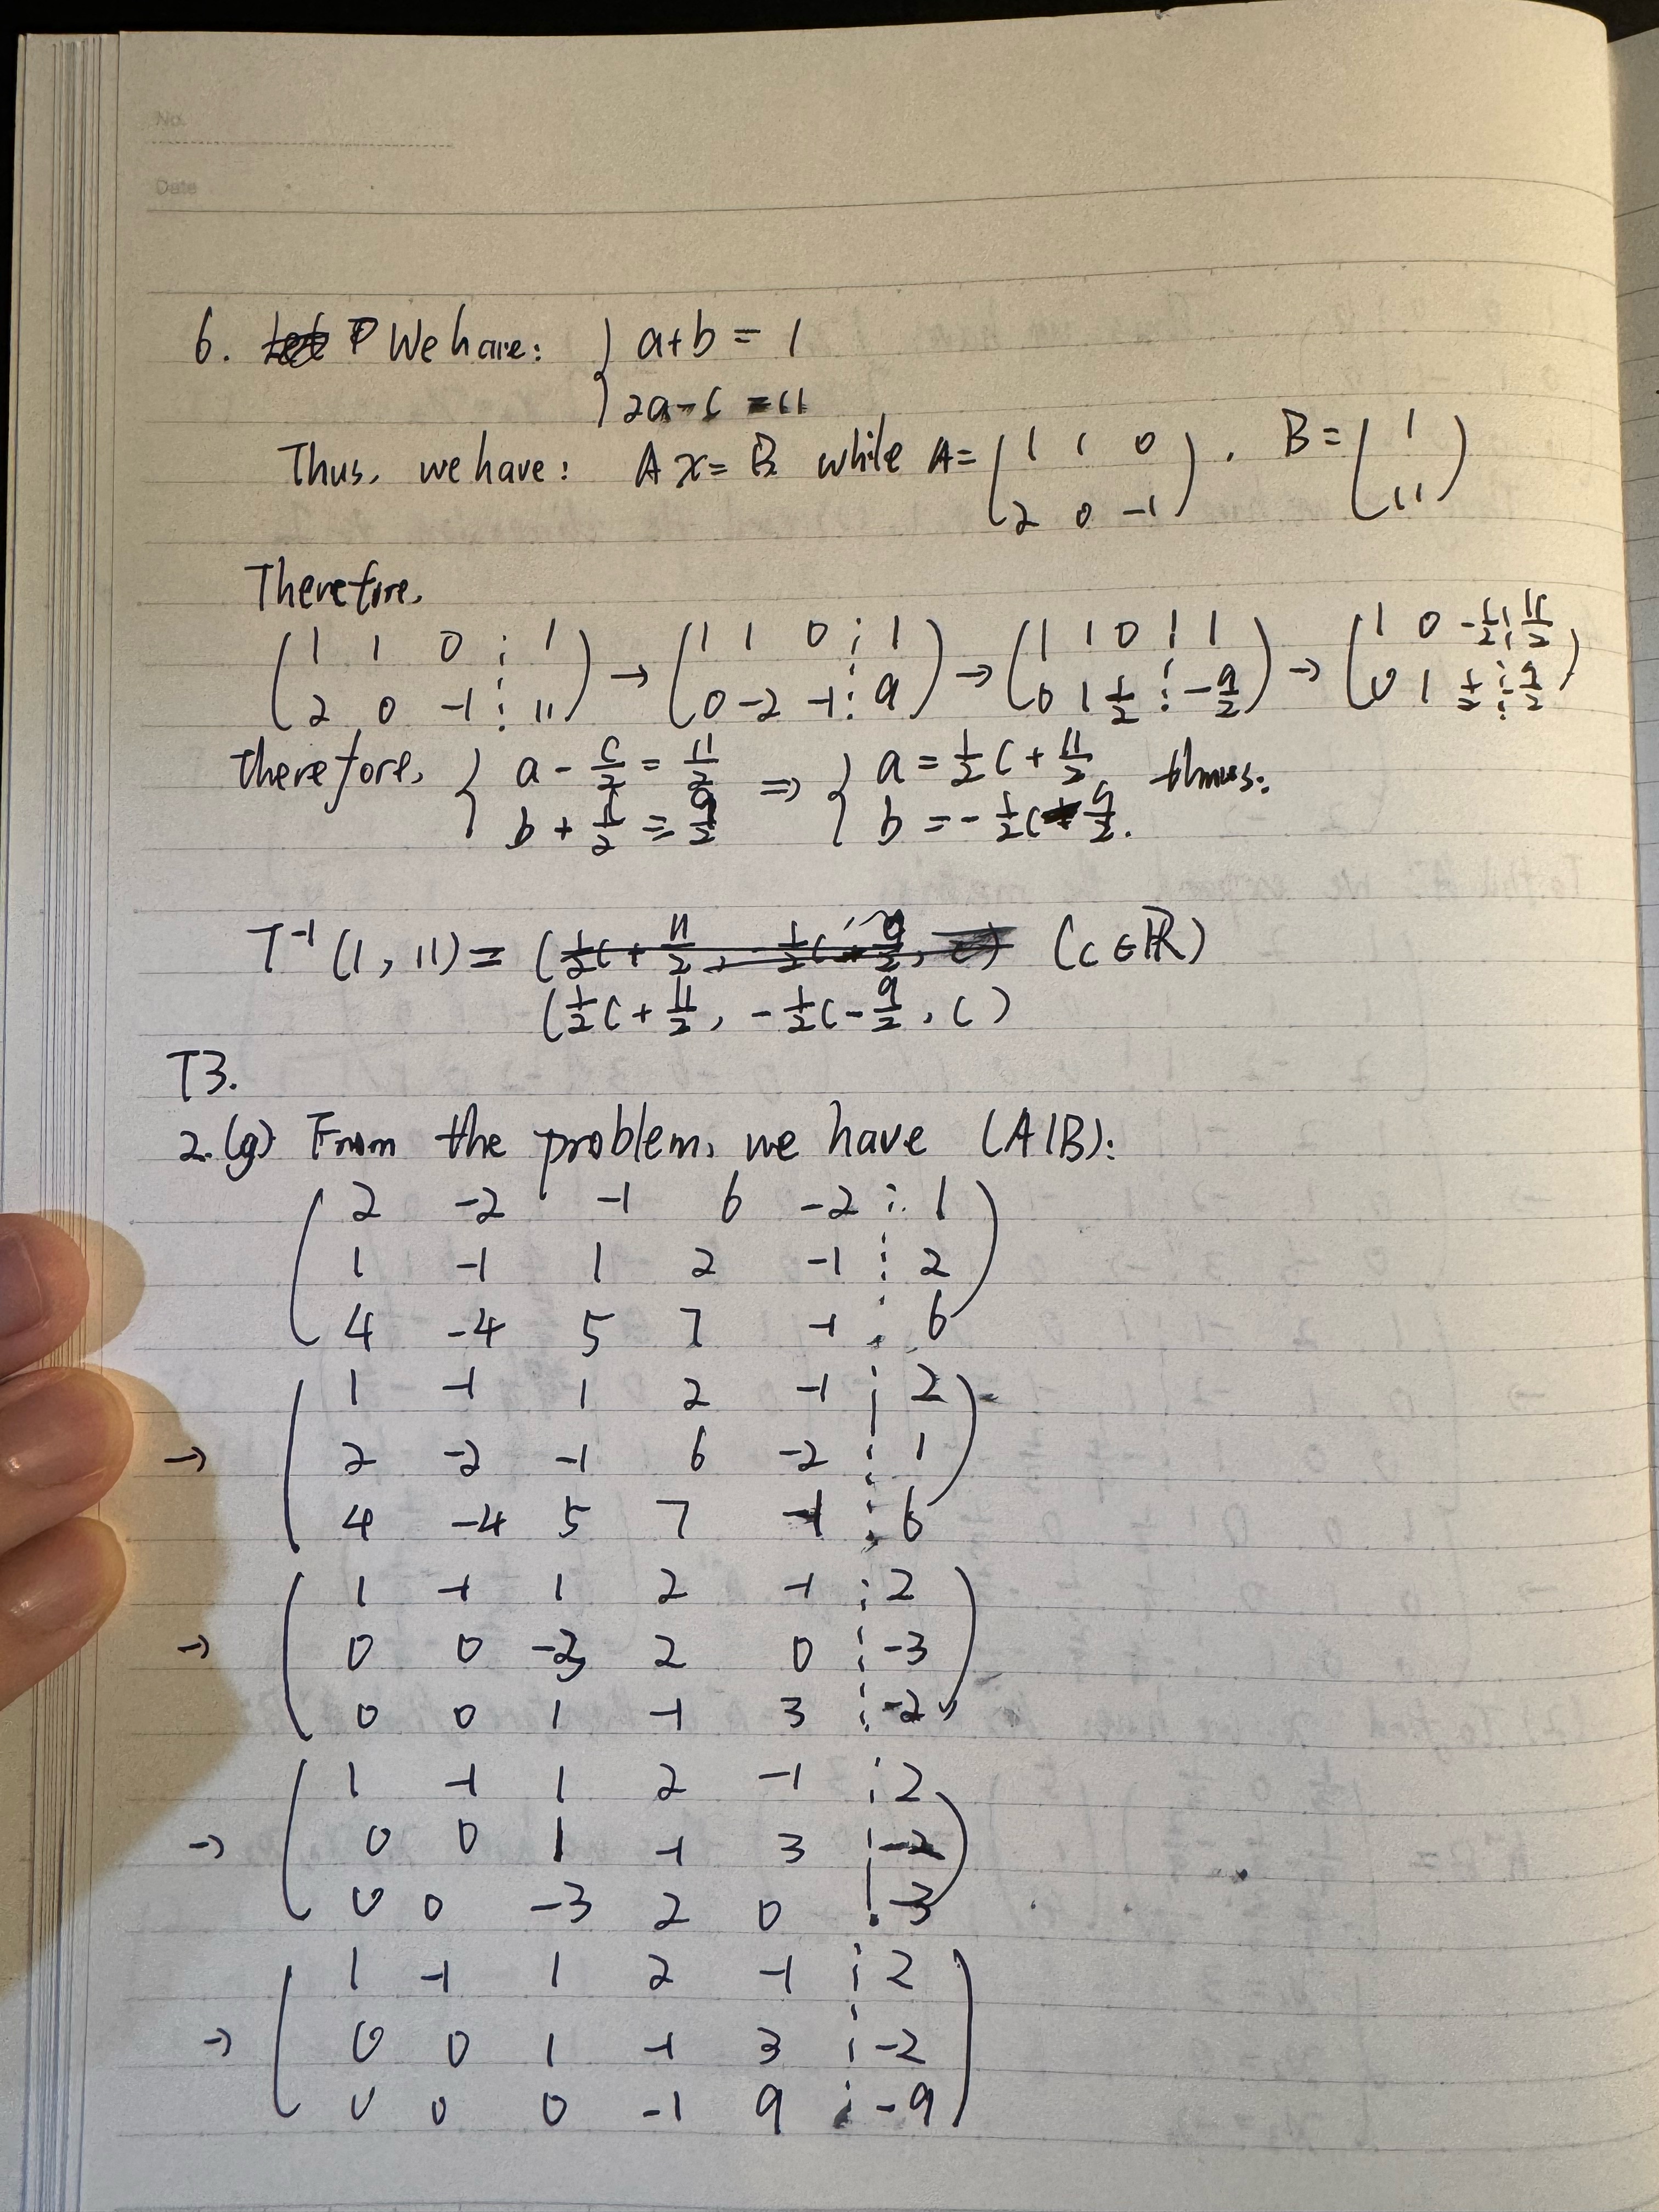 No.
Date
6. We have: { a+b = 1
2a-c = 11
Thus, we have: Ax = B while A = (1 1 0 , B = (1
2 0 -1) 11)
Therefore,
(1 1 0 ¦ 1 → (1 1 0 ¦ 1 → (1 1 0 ¦ 1 → (1 0 -1/2 ¦ 11/2
2 0 -1 ¦ 11) 0 -2 -1 ¦ 9) 0 1 1/2 ¦ -9/2) 0 1 1/2 ¦ -9/2)
therefore, { a - c/2 = 11/2 ⇒ { a = 1/2 c + 11/2 thus:
b + c/2 = -9/2 b = -1/2 c - 9/2.
T⁻¹(1, 11) = (c∈ℝ)
(1/2 c + 11/2, -1/2 c - 9/2, c)
T3.
2.(g) From the problem, we have (A|B):
(2 -2 -1 6 -2 ¦ 1
1 -1 1 2 -1 ¦ 2
4 -4 5 7 -1 ¦ 6)
(1 -1 1 2 -1 ¦ 2
→ 2 -2 -1 6 -2 ¦ 1
4 -4 5 7 -1 ¦ 6)
(1 -1 1 2 -1 ¦ 2
→ 0 0 -3 2 0 ¦ -3
0 0 1 -1 3 ¦ -2)
(1 -1 1 2 -1 ¦ 2
→ 0 0 1 -1 3 ¦ -2
0 0 -3 2 0 ¦ -3)
(1 -1 1 2 -1 ¦ 2
→ 0 0 1 -1 3 ¦ -2
0 0 0 -1 9 ¦ -9)